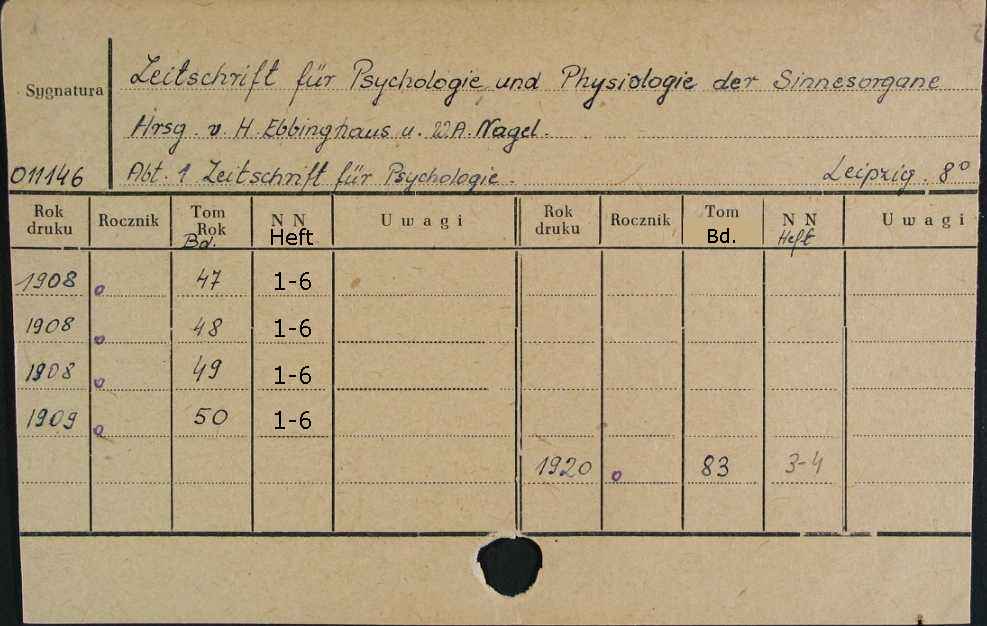 Zeitschrift für Psychologie und Physiologie der Sinnesorgane
Sygnatura
Hrsg. v. H. Ebbinghaus u. W.A. Nagel.
011146 Abt. 1 Zeitschrift für Psychologie. Leipzig. 8°
Rok druku Rocznik Tom Rok Bd. N N Heft Uwagi Rok druku Rocznik Tom Bd. N N Heft Uwagi
1908 o 47 1-6
1908 o 48 1-6
1908 o 49 1-6
1909 o 50 1-6
1920 o 83 3-4